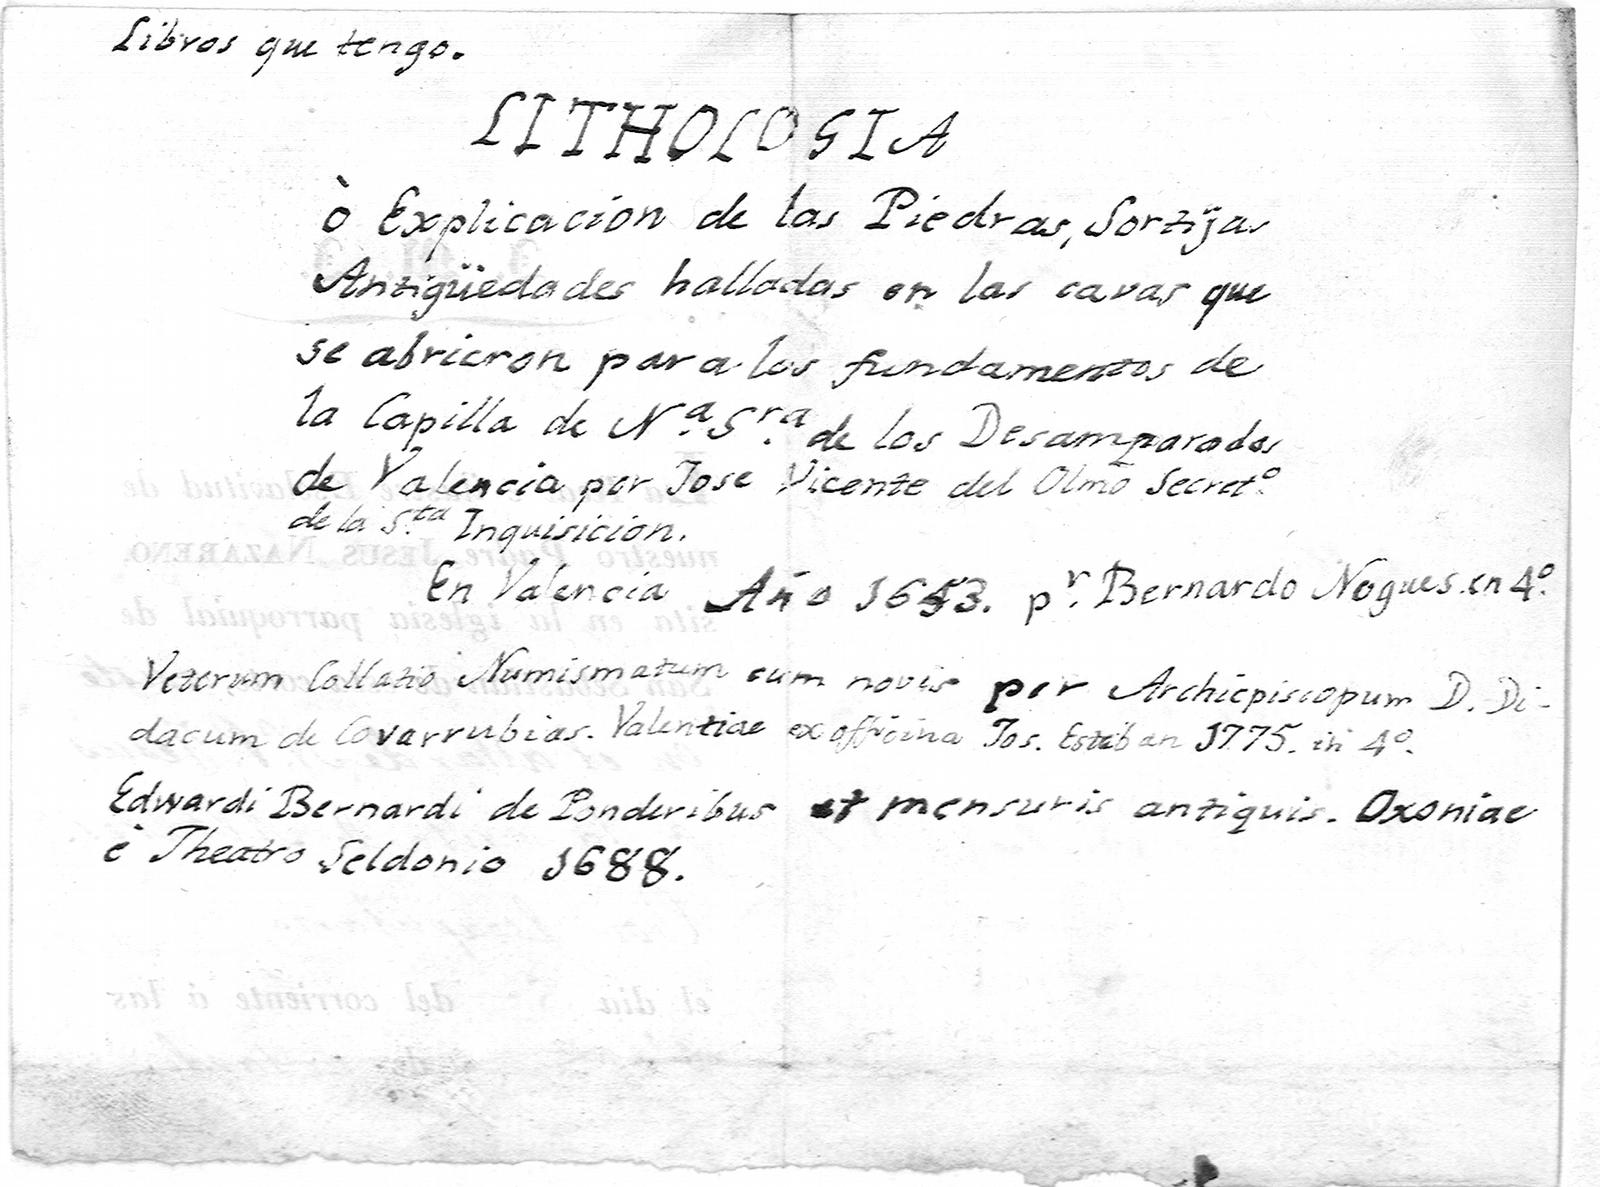 Libros que tengo.
LITHOLOGIA
ò Explicacion de las Piedras, Sortijas
Antigüedades halladas en las cavas que
se abrieron para los fundamentos de
la Capilla de N.ª S.ra de los Desamparados
de Valencia por Jose Vicente del Olmo Secret.º
de la S.ta Inquisicion.
En Valencia Año 1653. p.r Bernardo Nogues. en 4.º
Veterum Collatio Numismatum cum novis per Archiepiscopum D. Di-
dacum de Covarrubias. Valentiae ex officina Jos. Esteban 1775. in 4.º
Edwardi Bernardi de Ponderibus et mensuris antiquis. Oxoniae
è Theatro Seldonio 1688.
Esclavitud de
nuestro Padre JESUS NAZARENO,
sita en la iglesia parroquial de
San Sebastian
el dia del corriente á las